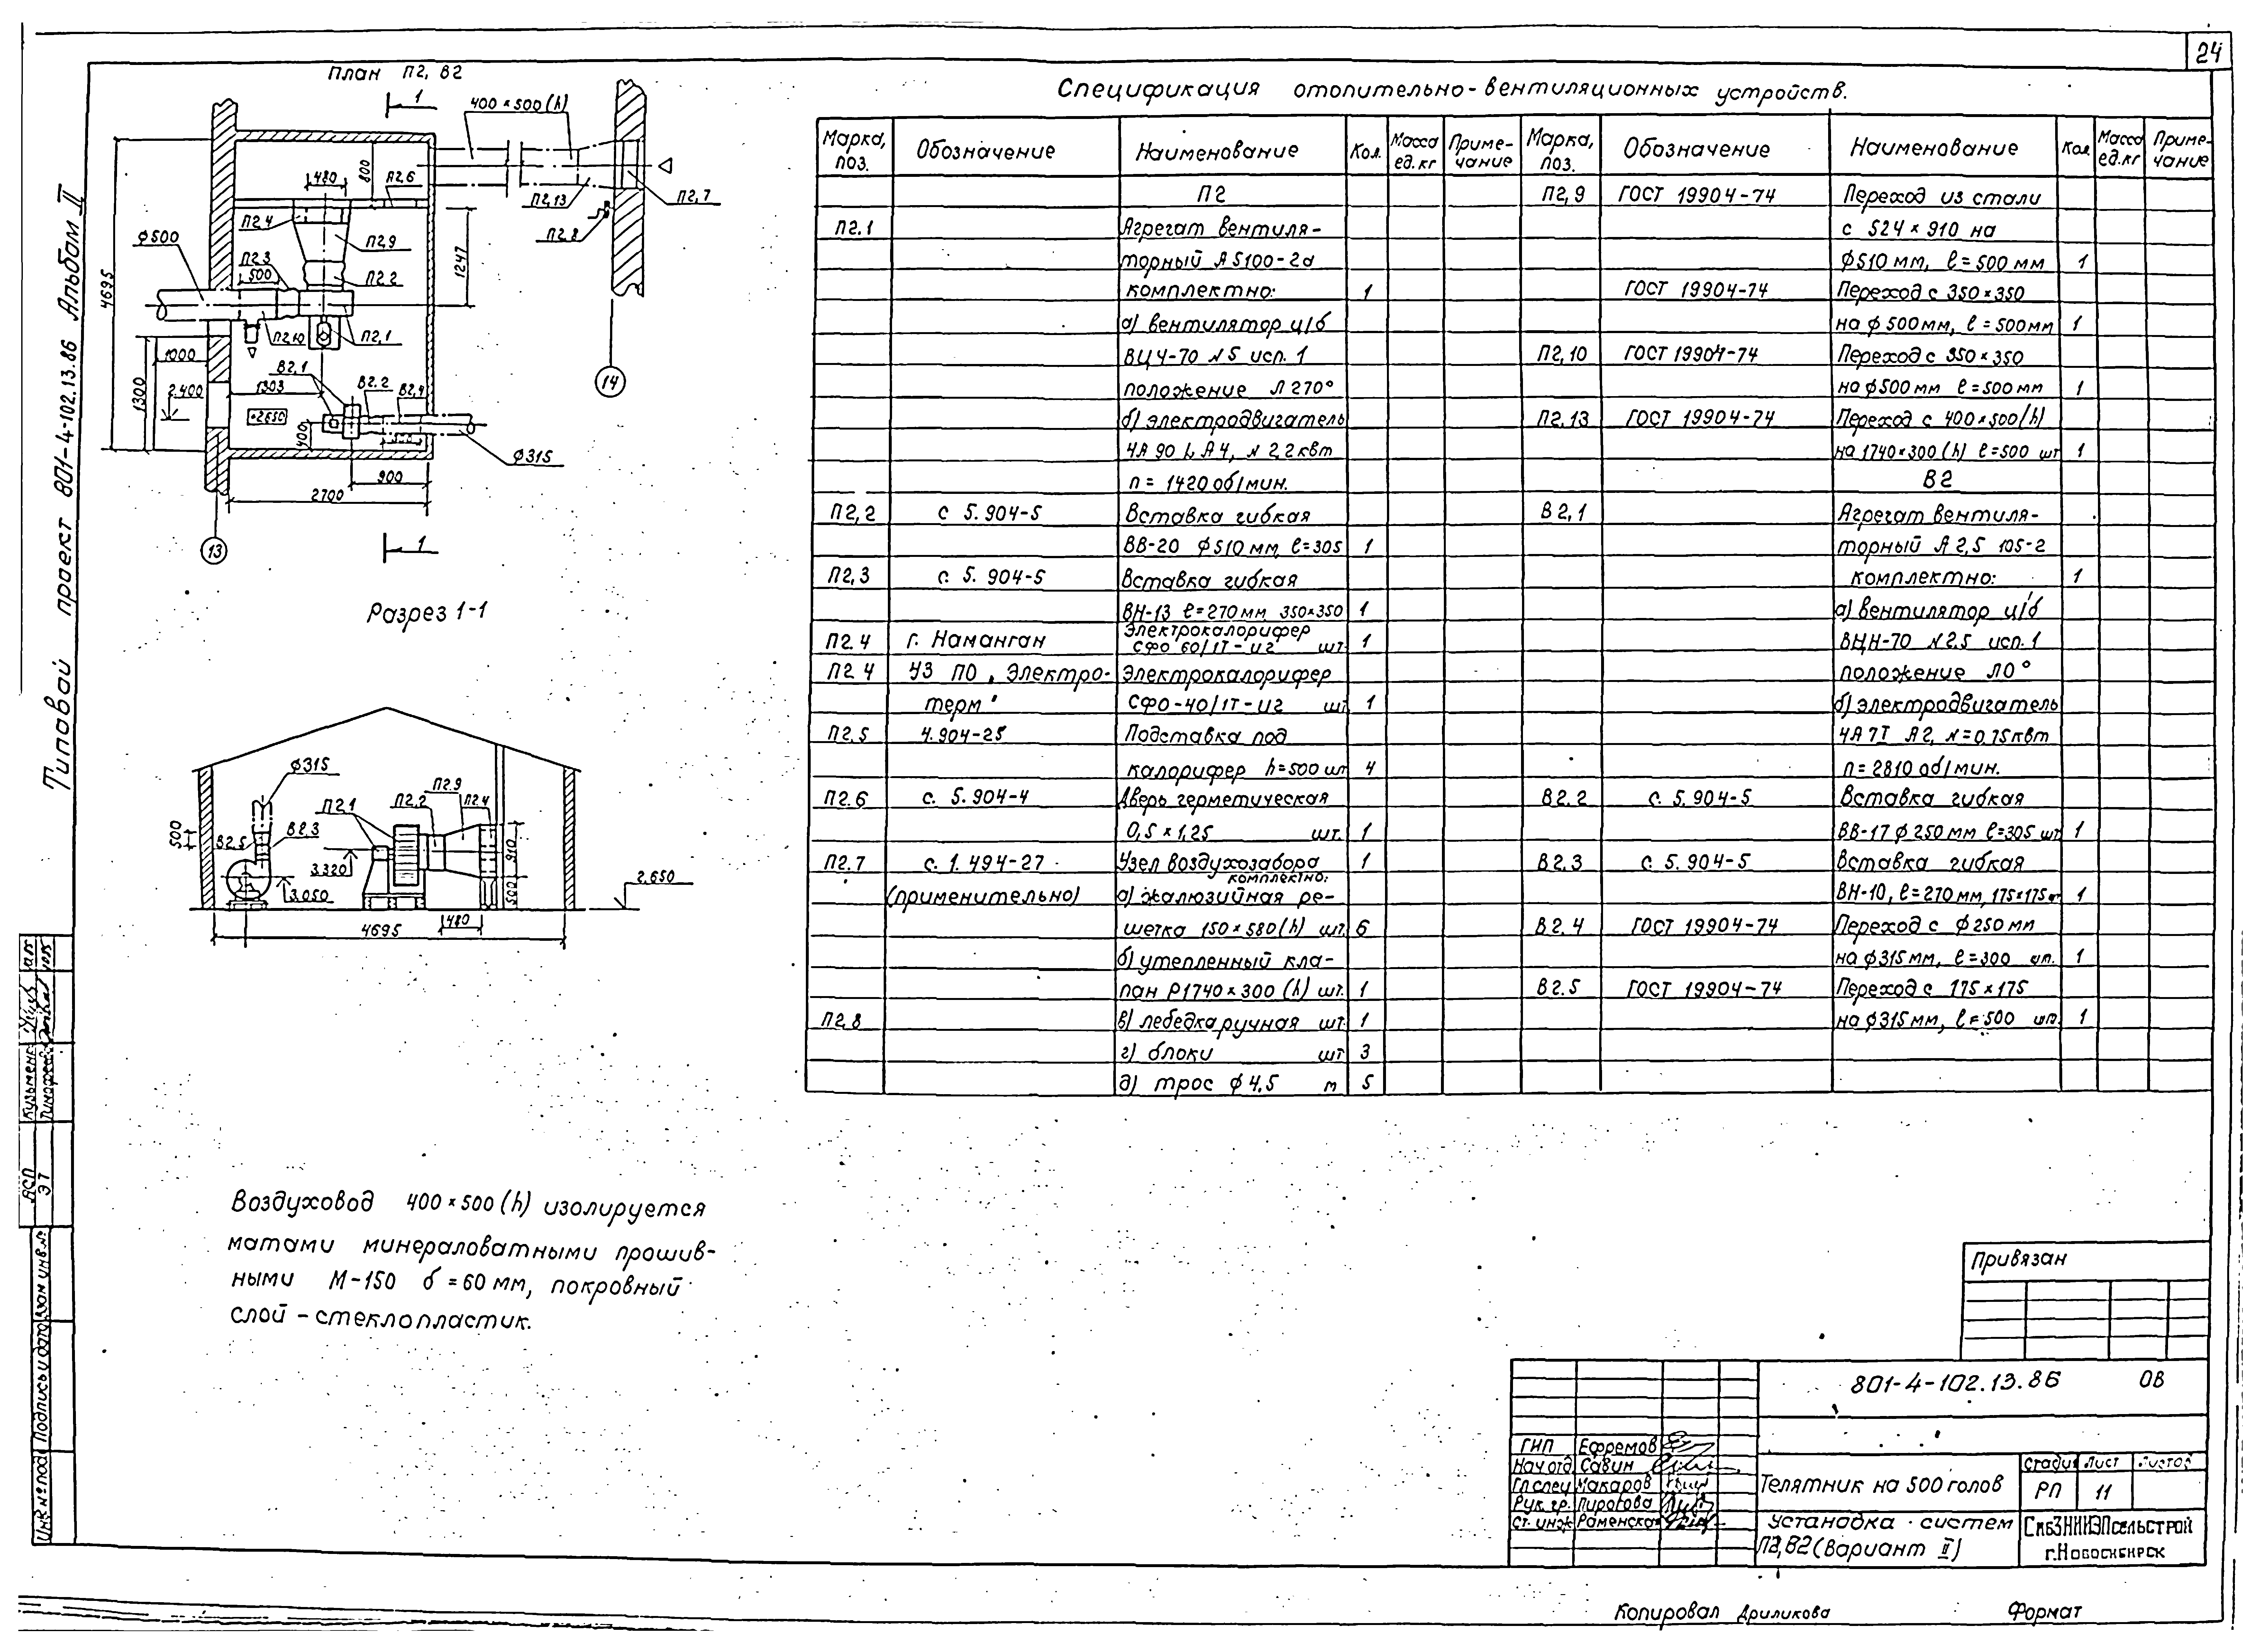 24
Типовой проект 801-4-102.13.86 Альбом II
План П2, В2
1
400×500(h)
480
П2,6
800
П2,13
П2,7
П2,8
П2.4
П2,9
ф500
П2,3
500
П2.2
1247
4695
П2,10
П2,1
1000
1300
2.400
1303
В2,1
В2.2
В2,4
+2,650
400
ф315
900
2700
13
14
1
Разрез 1-1
ф315
500
В2.5
В2,3
П2.1
П2.2
П2.9
П2.4
3.320
3.050
910
500
2,650
480
4695
Воздуховод 400×500(h) изолируется
матами минераловатными прошив-
ными М-150 б=60мм, покровный
слой-стеклопластик.
Спецификация отопительно-вентиляционных устройств.
Марка, поз. Обозначение Наименование Кол. Масса ед.кг Приме-чание Марка, поз. Обозначение Наименование Кол Масса ед.кг Приме-чание
П2 П2,9 ГОСТ 19904-74 Переход из стали
П2.1 Агрегат вентиля- с 524×910 на
торный А5100-2а ф510мм, l=500мм 1
комплектно: 1 ГОСТ 19904-74 Переход с 350×350
а) вентилятор ц/б на ф500мм, l=500мм 1
ВЦ4-70 N5 исп. 1 П2,10 ГОСТ 19904-74 Переход с 350×350
положение Л270° на ф500мм l=500мм 1
б) электродвигатель П2,13 ГОСТ 19904-74 Переход с 400×500(h)
4А 90 L А4, N 2,2квт на 1740×300(h) l=500 шт 1
n=1420об/мин. В2
П2,2 с 5.904-5 Вставка гибкая В2,1 Агрегат вентиля-
ВВ-20 ф510мм, l=305 1 торный А2,5 105-2
П2,3 с. 5.904-5 Вставка гибкая комплектно: 1
ВН-13 l=270мм, 350×350 1 а) вентилятор ц/б
П2.4 г. Наманган Электрокалорифер СФО 60/1Т-И2 шт. 1 ВЦН-70 N2,5 исп.1
П2.4 УЗ ПО „Электро- Электрокалорифер положение Л0°
терм" СФО-40/1Т-И2 шт 1 б) электродвигатель
П2,5 4.904-25 Подставка под 4А 7I А2, N=0,75квт
калорифер h=500 шт 4 n=2810об/мин.
П2.6 с. 5.904-4 Дверь герметическая В2.2 с. 5.904-5 Вставка гибкая
0,5×1,25 шт. 1 ВВ-17 ф250мм l=305 шт 1
П2.7 с. 1.494-27 Узел воздухозабора 1 В2.3 с 5.904-5 Вставка гибкая
комплектно:
(применительно) а) жалюзийная ре- ВН-10, l=270мм, 175×175 шт 1
шетка 150×580(h) шт. 6 В2.4 ГОСТ 19904-74 Переход с ф250мм
б) утепленный кла- на ф315мм, l=300 шт. 1
пан Р1740×300(h) шт. 1 В2.5 ГОСТ 19904-74 Переход с 175×175
П2,8 в) лебедка ручная шт. 1 на ф315мм, l=500 шт. 1
г) блоки шт 3
д) трос ф4,5 м 5
Привязан
801-4-102.13.86 ОВ
ГИП Ефремов
Нач отд Савин
Гл спец Макаров
Рук. гр. Пирогова
Ст. инж Раменская
Телятник на 500 голов
Стадия Лист Листов
РП 11
Установка систем
П2,В2 (вариант II)
СибЗНИИЭПсельстрой
г.Новосибирск
АСП
ЭТ
Инв.№ подл Подпись и дата Взам инв.№
Копировал Дриликова
Формат